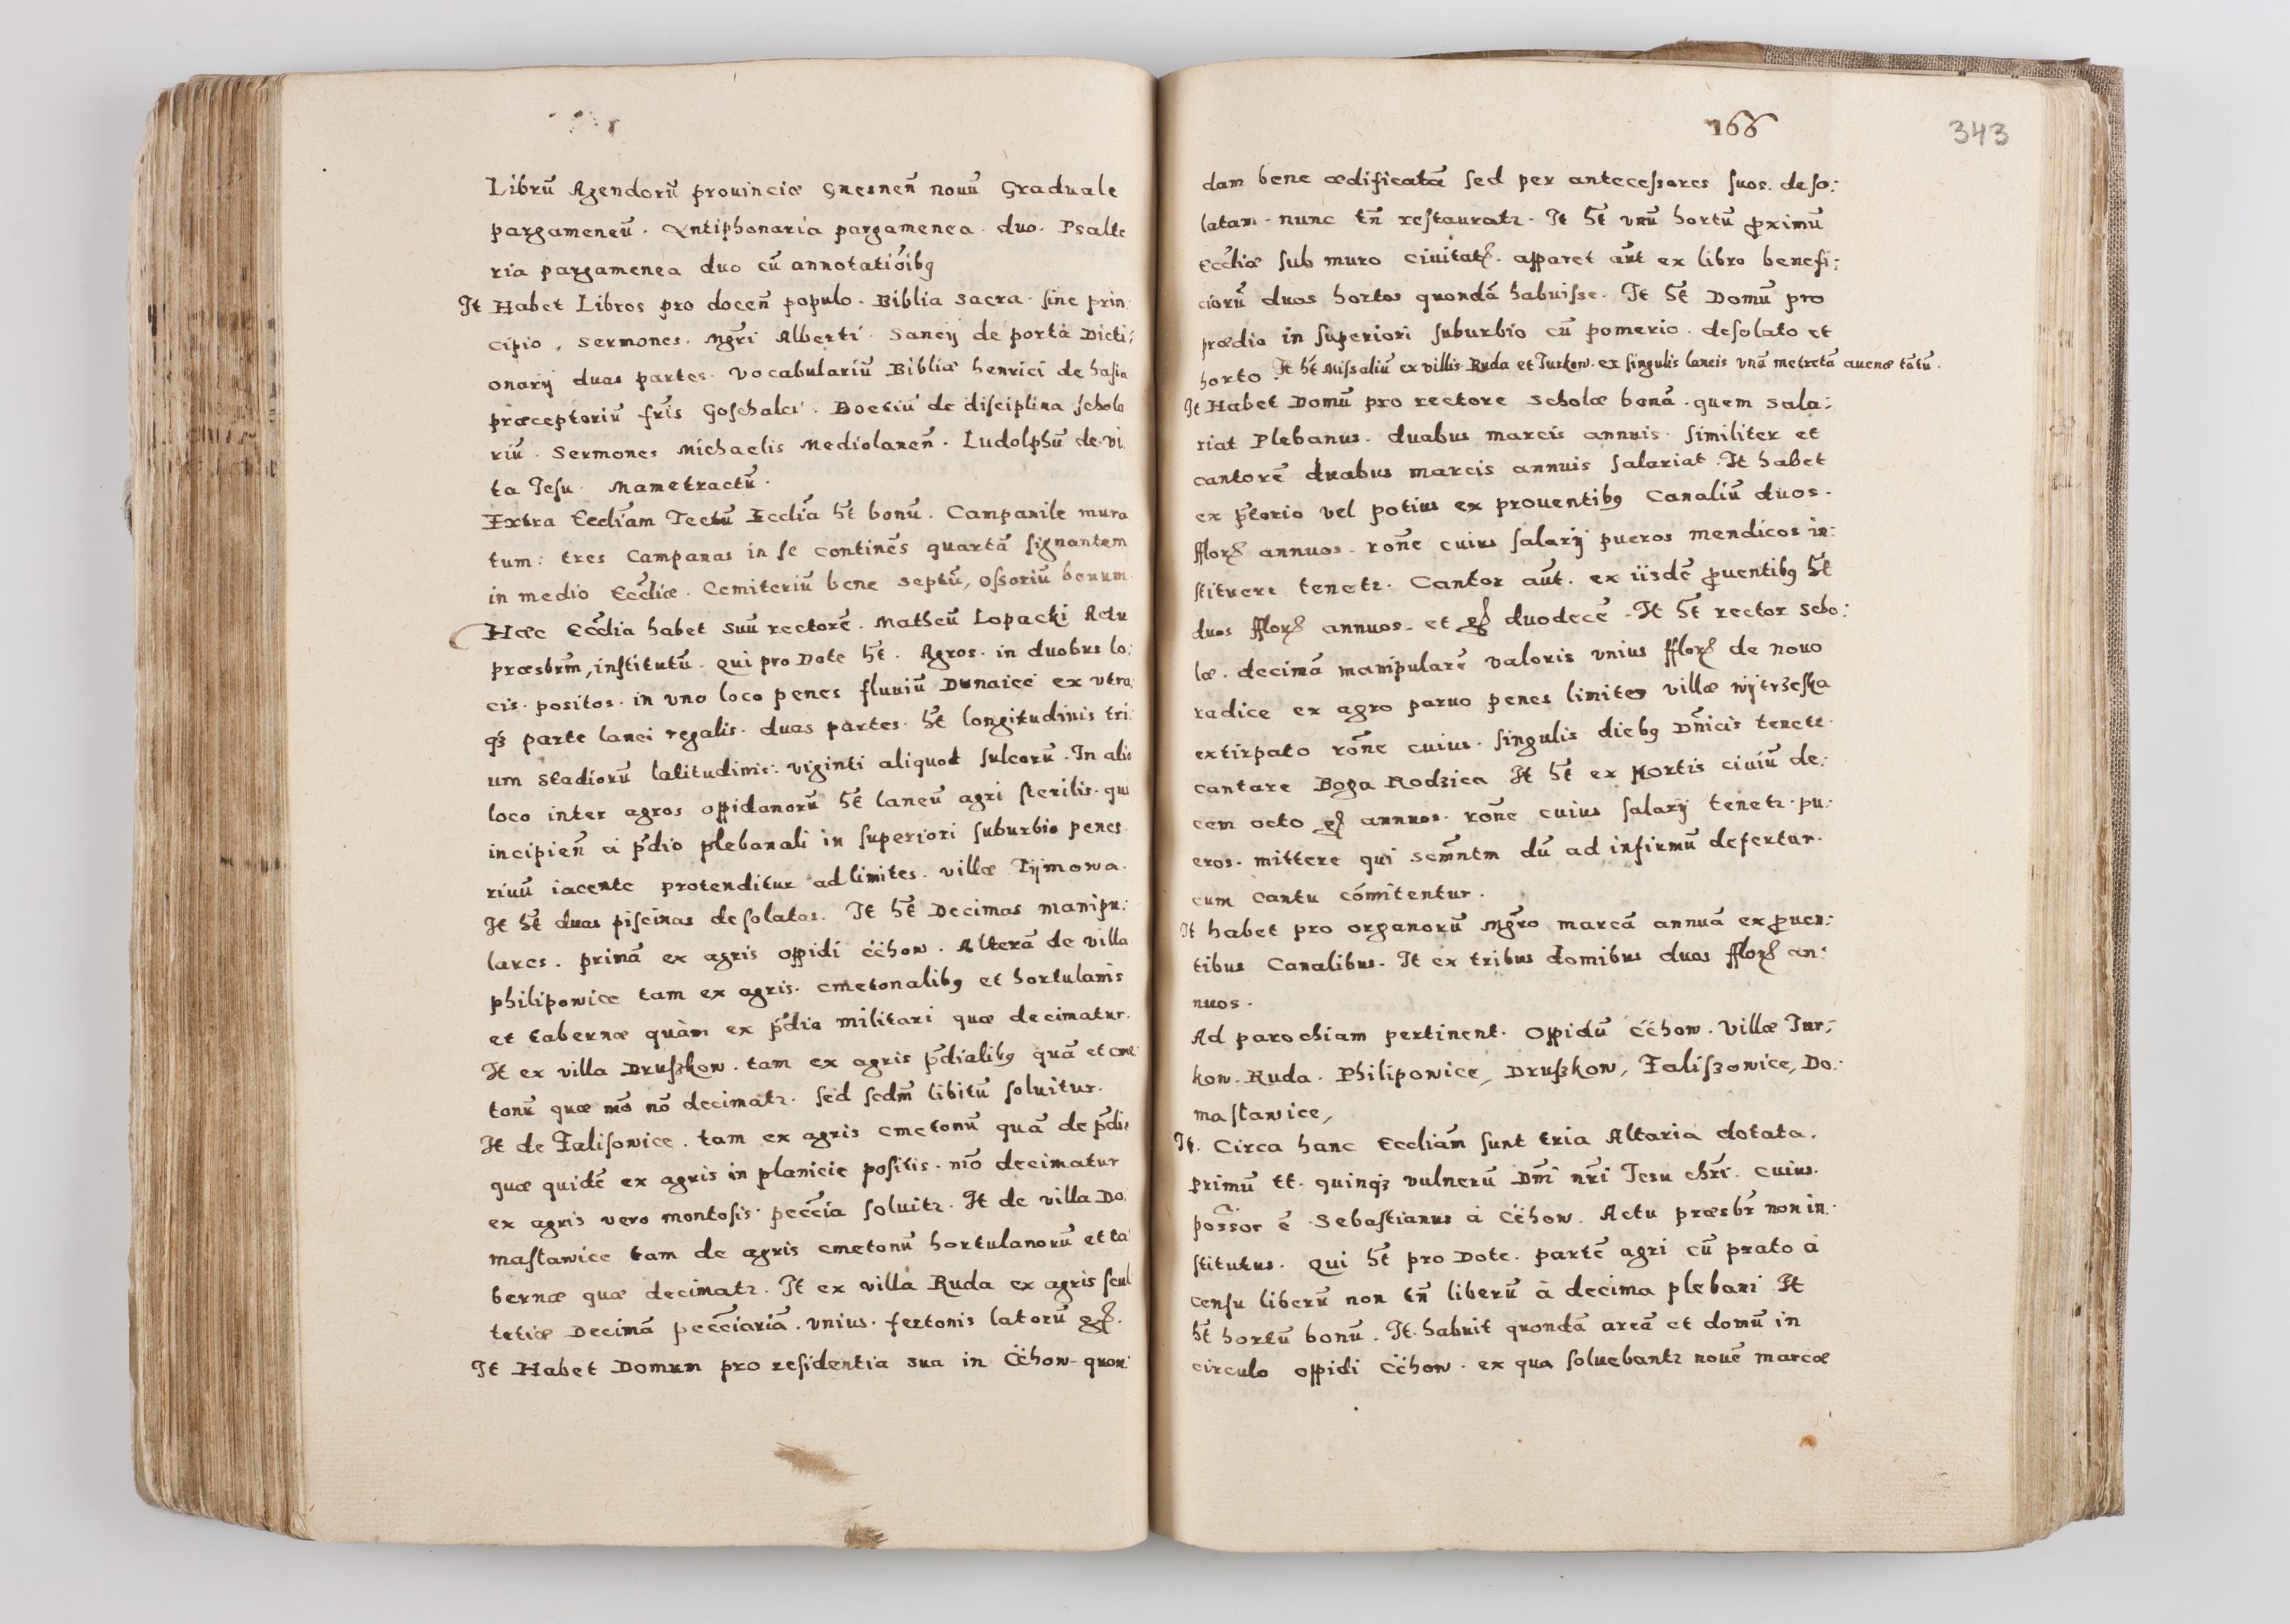 Librũ Agendorũ prouinciæ Gnesneñ nouũ Graduale
pargameneũ. Antiphonaria pargamenea duo. Psalte
ria pargamenea duo cũ annotatiõibꝫ
It Habet Libros pro doceñ populo. Biblia sacra sine prin:
cipio, sermones. Mgr̃i Alberti. Sancij de porta Dicti:
onarij duas partes. Vocabulariũ Bibliæ henrici de hasia
præceptoriũ fr̃is Goschalci. Boetiũ de disciplina schola
riũ. Sermones Michaelis Mediolaneñ. Ludolphũ de vi
ta Jesu. Mametractũ.
Extra Eccl̃iam Tectũ Eccl̃ia h̃t bonũ. Campanile mura
tum: tres Campanas in se continẽs quartã signantem
in medio Eccl̃iæ. Cemiteriũ bene septũ, ossoriũ bonum.
Hæc Eccl̃ia habet suũ rectorẽ. Matheũ Lopacki Actu
præsbr̃m, institutũ. qui pro Dote h̃t. Agros. in duobus lo:
cis. positos. in vno loco penes fluuiũ Dunaiec ex vtra:
qꝫ parte lanei regalis. duas partes. h̃t longitudinis tri:
um stadiorũ latitudinis: viginti aliquot sulcorũ. In alio
loco inter agros oppidanorũ h̃t laneũ agri sterilis. qui
incipieñ à p̃dio plebanali in superiori suburbio penes.
riuũ iacente protenditur ad limites. villæ Tymowa.
It h̃t duas piscinas desolatas. It h̃t Decimas manipu:
lares. primã ex agris oppidi Cc̈how. Alterã de villa
philipowice tam ex agris. cmetonalibꝫ et hortulanis
et tabernæ quàm ex p̃dio militari quæ decimatur.
It ex villa Druszkow. tam ex agris p̃dialibꝫ quã et cme
tonũ quæ mõ nõ decimatr. sed sedm̃ libitũ soluitur.
It de Falisowice. tam ex agris cmetonũ quã de p̃dio
quæ quidẽ ex agris in planicie positis. mõ decimatur
ex agris vero montosis. pecc̃ia soluitr. It de villa Do:
mastawice tam de agris cmetonũ hortulanorũ et ta
bernæ quæ decimatr. It ex villa Ruda ex agris scul
tetiæ Decimã pecc̃iariã. vnius. fertonis latorũ gꝭ.
It Habet Domum pro residentia sua in Cc̈how. quon:
166 343
dam bene ædificatã sed per antecessores suos. deso:
latam. nunc tñ restauratr. It h̃t vnũ hortũ p̃ximũ
Eccl̃iæ sub muro ciuitatꝭ. apparet aũt ex libro benefi:
ciorũ duos hortos quondã habuisse. It h̃t Domũ pro
prædio in superiori suburbio cũ pomerio. desolato et
horto. It h̃t Missaliũ ex villis Ruda et Jurkow. ex singulis laneis vnã metretã auenæ tãtũ.
It Habet Domũ pro rectore scholæ bonã. quem sala:
riat Plebanus. duabus marcis annuis. similiter et
cantorẽ duabus marcis annuis salariat. It habet
ex p̃torio vel potius ex prouentibꝫ Canaliũ duos.
fflorꝭ annuos. rõne cuius salarij pueros mendicos in:
stituere tenetr. Cantor aũt. ex iisdẽ p̃uentibꝫ h̃t
duos fflorꝭ annuos. et gꝭ duodecẽ. It h̃t rector scho:
læ. decimã manipularẽ valoris vnius fflorꝭ de nouo
radice ex agro paruo penes limites villæ wytrzeska
extirpato rõne cuius. singulis diebꝫ Dñicis tenete.
cantare Boga Rodzica It h̃t ex Hortis ciuiũ de:
cem octo gꝭ annuos. rõne cuius salarij tenetr. pu:
eros. mittere qui sc̃mntm dũ ad infirmũ defertur.
cum cantu cõmitentur.
It habet pro organorũ Mgr̃o marcã annuã ex p̃uen:
tibus Canalibus. It ex tribus domibus duos fflorꝭ an:
nuos.
Ad parochiam pertinent. Oppidũ Cc̈how. Villæ Jur:
kow. Ruda. Philipowice, Druszkow, Faliszowice, Do:
mastawice,
It. Circa hanc Eccliãm sunt tria Altaria dotata.
primũ tt. quinqꝫ vulnerũ Dñi nr̃i Jesu chr̃i. cuius.
possor ẽ Sebastianus à Cc̈how. Actu præsbr̃ non in:
stitutus. Qui h̃t pro Dote. partẽ agri cũ prato à
censu liberũ non tñ liberũ à decima plebani It
h̃t hortũ bonũ. It. habuit quondã areã et domũ in
circulo oppidi Cc̈how. ex qua soluebantr nouẽ marcæ